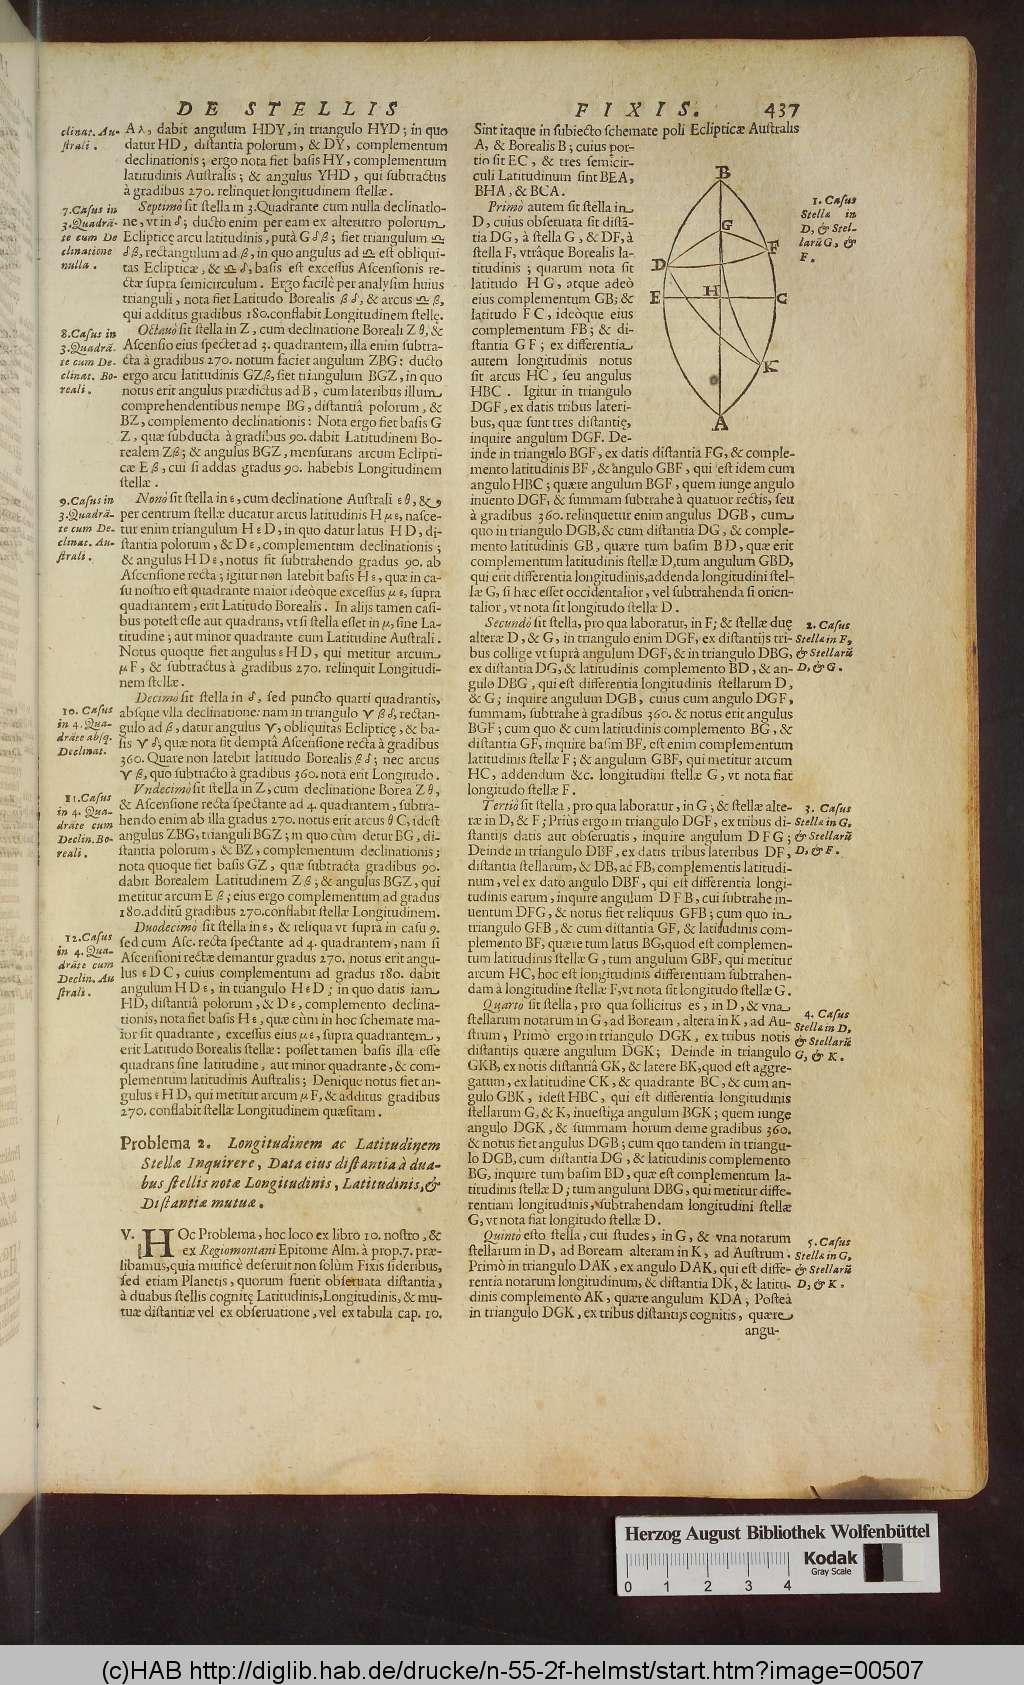 DE STELLIS
FIXIS. 437
clinat. Au-
strali.
Aλ, dabit angulum HDY, in triangulo HYD; in quo
datur HD, distantia polorum, & DY, complementum
declinationis; ergo nota fiet basis HY, complementum
latitudinis Australis; & angulus YHD, qui subtractus
à gradibus 270. relinquet longitudinem stellæ.
7. Casus in
3. Quadrā-
te cum De
clinatione
nulla.
Septimò sit stella in 3. Quadrante cum nulla declinatio-
ne, vt in δ; ducto enim per eam ex alterutro polorum
Eclipticę arcu latitudinis, putà G δ β; fiet triangulum ♎
δ β, rectangulum ad β, in quo angulus ad ♎ est obliqui-
tas Eclipticæ, & ♎ δ, basis est excessus Ascensionis re-
ctæ supra semicirculum. Ergo facilè per analysim huius
trianguli, nota fiet Latitudo Borealis β δ, & arcus ♎ β,
qui additus gradibus 180. conflabit Longitudinem stellę.
8. Casus in
3. Quadrā.
te cum De-
clinat. Bo-
reali.
Octauò sit stella in Z, cum declinatione Boreali Z θ, &
Ascensio eius spectet ad 3. quadrantem, illa enim subtra-
cta à gradibus 270. notum faciet angulum ZBG: ducto
ergo arcu latitudinis GZβ, fiet triangulum BGZ, in quo
notus erit angulus prædictus ad B, cum lateribus illum
comprehendentibus nempe BG, distantiâ polorum, &
BZ, complemento declinationis: Nota ergo fiet basis G
Z, quæ subducta à gradibus 90. dabit Latitudinem Bo-
realem Zβ; & angulus BGZ, mensurans arcum Eclipti-
cæ E β, cui si addas gradus 90. habebis Longitudinem
stellæ.
9. Casus in
3. Quadrā-
te cum De-
clinat. Au-
strali.
Nonò sit stella in ε, cum declinatione Australi ε θ, &
per centrum stellæ ducatur arcus latitudinis H μ ε, nasce-
tur enim triangulum H ε D, in quo datur latus H D, di-
stantia polorum, & D ε, complementum declinationis;
& angulus H D ε, notus fit subtrahendo gradus 90. ab
Ascensione recta; igitur non latebit basis H ε, quæ in ca-
su nostro est quadrante maior ideóque excessus μ ε, supra
quadrantem, erit Latitudo Borealis. In alijs tamen casi-
bus potest esse aut quadrans, vt si stella esset in μ, sine La-
titudine; aut minor quadrante cum Latitudine Australi.
Notus quoque fiet angulus ε H D, qui metitur arcum
μ F, & subtractus à gradibus 270. relinquit Longitudi-
nem stellæ.
10. Casus
in 4. Qua-
drāte absq.
Declinat.
Decimò sit stella in δ, sed puncto quarti quadrantis,
absque vlla declinatione: nam in triangulo ♈ β δ, rectan-
gulo ad β, datur angulus ♈, obliquitas Eclipticę, & ba-
sis ♈ δ; quæ nota fit demptâ Ascensione recta à gradibus
360. Quare non latebit latitudo Borealis β δ; nec arcus
♈ β, quo subtracto à gradibus 360. nota erit Longitudo.
11. Casus
in 4. Qua-
drāte cum
Declin. Bo-
reali.
Vndecimò sit stella in Z, cum declinatione Borea Z θ,
& Ascensione recta spectante ad 4. quadrantem, subtra-
hendo enim ab illa gradus 270. notus erit arcus θ C, idest
angulus ZBG, trianguli BGZ; in quo cùm detur BG, di-
stantia polorum, & BZ, complementum declinationis;
nota quoque fiet basis GZ, quæ subtracta gradibus 90.
dabit Borealem Latitudinem Z β; & angulus BGZ, qui
metitur arcum E β; eius ergo complementum ad gradus
180. additū gradibus 270. conflabit stellæ Longitudinem.
12. Casus
in 4. Qua-
drāte cum
Declin. Au
strali.
Duodecimò sit stella in ε, & reliqua vt suprà in casu 9.
sed cum Asc. recta spectante ad 4. quadrantem, nam si
Ascensioni rectæ demantur gradus 270. notus erit angu-
lus ε D C, cuius complementum ad gradus 180. dabit
angulum H D ε, in triangulo H ε D; in quo datis iam
HD, distantiâ polorum, & D ε, complemento declina-
tionis, nota fiet basis H ε, quæ cùm in hoc schemate ma-
ior sit quadrante, excessus eius μ ε, supra quadrantem,
erit Latitudo Borealis stellæ: posset tamen basis illa esse
quadrans sine latitudine, aut minor quadrante, & com-
plementum latitudinis Australis; Denique notus fiet an-
gulus ε H D, qui metitur arcum μ F, & additus gradibus
270. conflabit stellæ Longitudinem quæsitam.
Problema 2. Longitudinem ac Latitudinem
Stellæ Inquirere, Data eius distantia à dua-
bus stellis notæ Longitudinis, Latitudinis, &
Distantiæ mutuæ.
V. HOc Problema, hoc loco ex libro 10. nostro, &
ex Regiomontani Epitome Alm. à prop. 7. præ-
libamus, quia mirificè deseruit non solùm Fixis sideribus,
sed etiam Planetis, quorum fuerit obseruata distantia,
à duabus stellis cognitę Latitudinis, Longitudinis, & mu-
tuæ distantiæ vel ex obseruatione, vel ex tabula cap. 10.
Sint itaque in subiecto schemate poli Eclipticæ Australis
A, & Borealis B; cuius por-
tio sit EC, & tres semicir-
culi Latitudinum sint BEA,
BHA, & BCA.
1. Casus
Stella in
D, & Stel-
larū G, &
F.
Primò autem sit stella in
D, cuius obseruata sit distā-
tia DG, à stella G, & DF, à
stella F, vtrâque Borealis la-
titudinis; quarum nota sit
latitudo H G, atque adeò
eius complementum GB; &
latitudo F C, ideòque eius
complementum FB; & di-
stantia G F; ex differentia
autem longitudinis notus
sit arcus HC, seu angulus
HBC. Igitur in triangulo
DGF, ex datis tribus lateri-
bus, quæ sunt tres distantię,
inquire angulum DGF. De-
inde in triangulo BGF, ex datis distantia FG, & comple-
mento latitudinis BF, & angulo GBF, qui est idem cum
angulo HBC; quære angulum BGF, quem iunge angulo
inuento DGF, & summam subtrahe à quatuor rectis, seu
à gradibus 360. relinquetur enim angulus DGB, cum
quo in triangulo DGB, & cum distantia DG, & comple-
mento latitudinis GB, quære tum basim BD, quæ erit
complementum latitudinis stellæ D, tum angulum GBD,
qui erit differentia longitudinis, addenda longitudini stel-
læ G, si hæc esset occidentalior, vel subtrahenda si orien-
talior, vt nota sit longitudo stellæ D.
2. Casus
Stella in F,
& Stellarū
D, & G.
Secundò sit stella, pro qua laboratur, in F; & stellæ duę
alteræ D, & G, in triangulo enim DGF, ex distantijs tri-
bus collige vt suprà angulum DGF; & in triangulo DBG,
ex distantia DG, & latitudinis complemento BD, & an-
gulo DBG, qui est differentia longitudinis stellarum D,
& G; inquire angulum DGB, cuius cum angulo DGF,
summam, subtrahe à gradibus 360. & notus erit angulus
BGF; cum quo & cum latitudinis complemento BG, &
distantia GF, inquire basim BF, est enim complementum
latitudinis stellæ F; & angulum GBF, qui metitur arcum
HC, addendum &c. longitudini stellæ G, vt nota fiat
longitudo stellæ F.
3. Casus
Stella in G,
& Stellarū
D, & F.
Tertiò sit stella, pro qua laboratur, in G; & stellæ alte-
ræ in D, & F; Priùs ergo in triangulo DGF, ex tribus di-
stantijs datis aut obseruatis, inquire angulum DFG;
Deinde in triangulo DBF, ex datis tribus lateribus DF,
distantia stellarum, & DB, ac FB, complementis latitudi-
num, vel ex dato angulo DBF, qui est differentia longi-
tudinis earum, inquire angulum D F B, cui subtrahe in-
uentum DFG, & notus fiet reliquus GFB; cum quo in
triangulo GFB, & cum distantia GF, & latitudinis com-
plemento BF, quære tum latus BG, quod est complemen-
tum latitudinis stellæ G, tum angulum GBF, qui metitur
arcum HC, hoc est longitudinis differentiam subtrahen-
dam à longitudine stellæ F, vt nota sit longitudo stellæ G.
4. Casus
Stella in D,
& Stellarū
G, & K.
Quartò sit stella, pro qua sollicitus es, in D, & vna
stellarum notarum in G, ad Boream, altera in K, ad Au-
strum, Primò ergo in triangulo DGK, ex tribus notis
distantijs quære angulum DGK; Deinde in triangulo
GKB, ex notis distantiâ GK, & latere BK, quod est aggre-
gatum, ex latitudine CK, & quadrante BC, & cum an-
gulo GBK, idest HBC, qui est differentia longitudinis
stellarum G, & K, inuestiga angulum BGK; quem iunge
angulo DGK, & summam horum deme gradibus 360.
& notus fiet angulus DGB; cum quo tandem in triangu-
lo DGB, cum distantia DG, & latitudinis complemento
BG, inquire tum basim BD, quæ est complementum la-
titudinis stellæ D; tum angulum DBG, qui metitur diffe-
rentiam longitudinis, subtrahendam longitudini stellæ
G, vt nota fiat longitudo stellæ D.
5. Casus
Stella in G,
& Stellarū
D, & K.
Quintò esto stella, cui studes, in G, & vna notarum
stellarum in D, ad Boream alteram in K, ad Austrum.
Primò in triangulo DAK, ex angulo DAK, qui est diffe-
rentia notarum longitudinum, & distantia DK, & latitu-
dinis complemento AK, quære angulum KDA; Posteà
in triangulo DGK, ex tribus distantijs cognitis, quære
angu-
B
G
F
D
E
H
C
K
A
Herzog August Bibliothek Wolfenbüttel
0 1 2 3 4
Kodak
Gray Scale
(c)HAB http://diglib.hab.de/drucke/n-55-2f-helmst/start.htm?image=00507